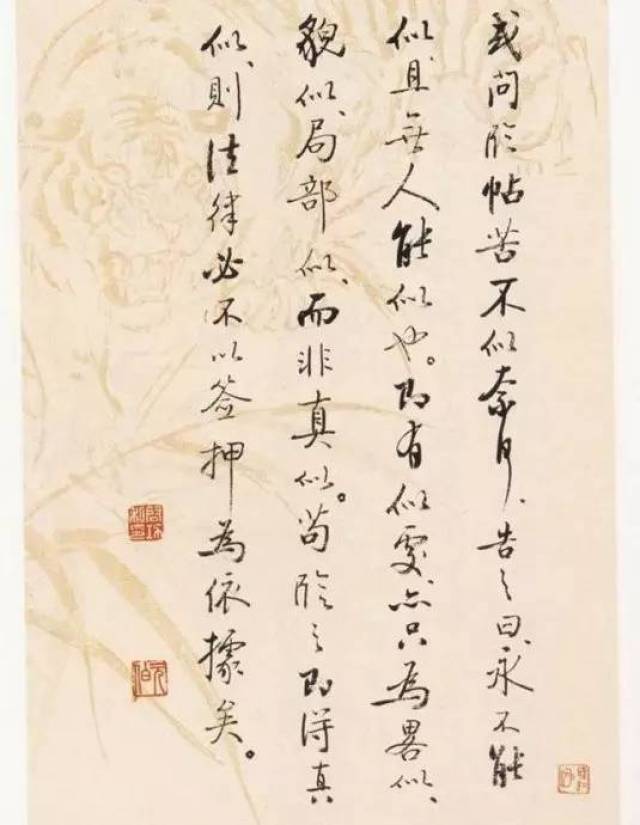 或问临帖苦不似奈何、告之曰、永不能
似、且無人能似也。即有似處、亦只為畧似、
貌似、局部似、而非真似。苟臨之即得真
似、則法律必不以签押為依據矣。